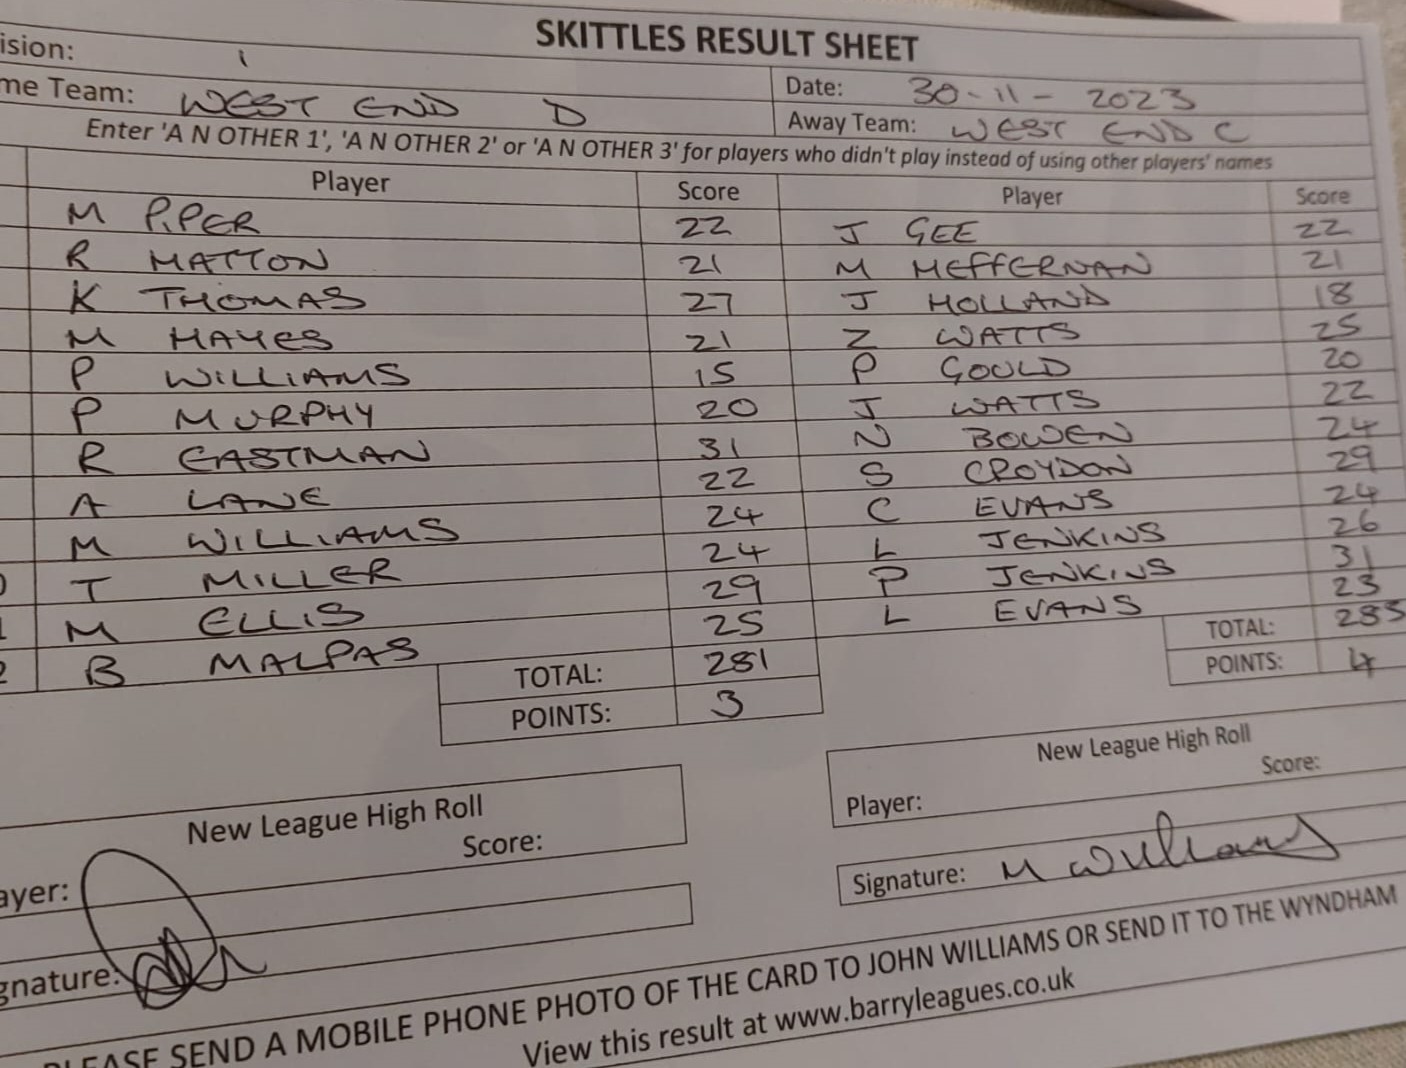 SKITTLES RESULT SHEET
ision: 1
me Team: WEST END D Date: 30-11-2023
Away Team: WEST END C
Enter 'A N OTHER 1', 'A N OTHER 2' or 'A N OTHER 3' for players who didn't play instead of using other players' names
Player Score Player Score
M PIPER 22 J GEE 22
R HATTON 21 M HEFFERNAN 21
K THOMAS 27 J HOLLAND 18
M HAYES 21 Z WATTS 25
P WILLIAMS 15 P GOULD 20
P MURPHY 20 J WATTS 22
R EASTMAN 31 N BOWEN 24
A LANE 22 S CROYDON 29
M WILLIAMS 24 C EVANS 24
0 T MILLER 24 L JENKINS 26
1 M ELLIS 29 P JENKINS 31
2 B MALPAS 25 L EVANS 23
TOTAL: 281 TOTAL: 285
POINTS: 3 POINTS: 4
New League High Roll New League High Roll
Score: Score:
ayer: Player:
gnature: Signature: M Williams
PLEASE SEND A MOBILE PHONE PHOTO OF THE CARD TO JOHN WILLIAMS OR SEND IT TO THE WYNDHAM
View this result at www.barryleagues.co.uk